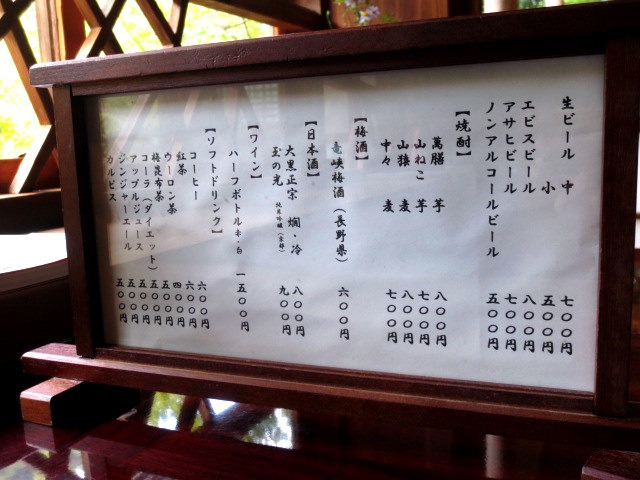 生ビール 中 七〇〇円
小 五〇〇円
エビスビール 八〇〇円
アサヒビール 七〇〇円
ノンアルコールビール 五〇〇円
【焼酎】
萬膳 芋 八〇〇円
山ねこ 芋 七〇〇円
山猿 麦 八〇〇円
中々 麦 七〇〇円
【梅酒】
竜峡梅酒(長野県) 六〇〇円
【日本酒】
大黒正宗 燗・冷 八〇〇円
玉の光 純米吟醸(京都) 九〇〇円
【ワイン】
ハーフボトル 赤・白 一五〇〇円
【ソフトドリンク】
コーヒー 六〇〇円
紅茶 六〇〇円
ウーロン茶 四〇〇円
梅昆布茶 五〇〇円
コーラ(ダイエット) 五〇〇円
アップルジュース 五〇〇円
ジンジャーエール 五〇〇円
カルピス 五〇〇円